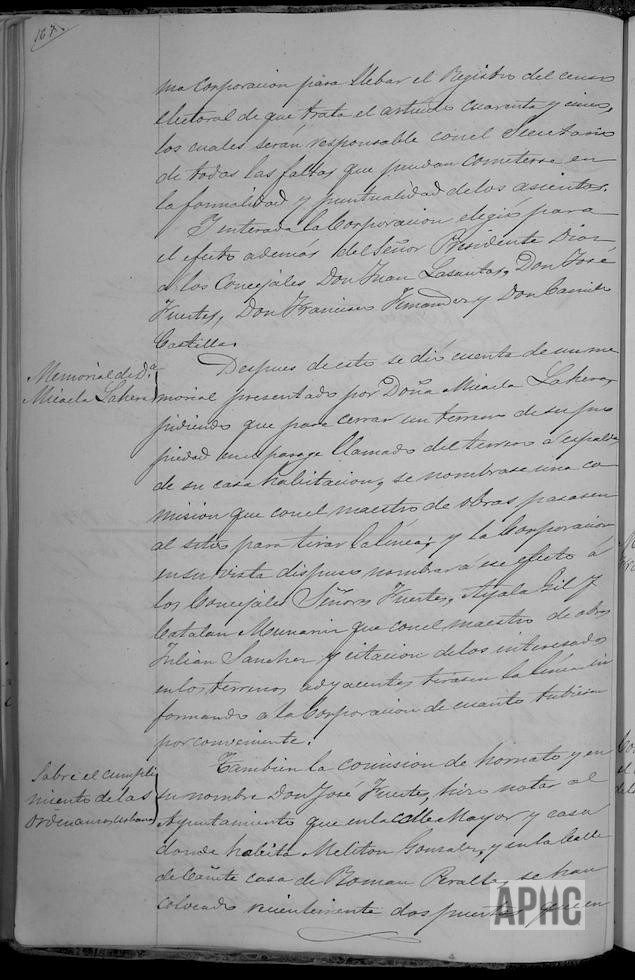 167.
ma Corporacion para llebar el Registro del censo
electoral de que trata el articulo cuarenta y cinco,
los cuales serán responsable con el Secretario
de todas las faltas que puedan cometerse en
la formalidad y puntualidad de los asientos.
Y enterada la Corporacion eligió para
el efecto además del Señor Presidente
á los Concejales Don Juan Lasantas, Don José
Fuertes, Don Francisco Fernandez y Don Camilo
Castilla.
Memorial de D.ª
Micaela Lahera
Despues de esto se dió cuenta de un me
morial presentado por Doña Micaela Lahera,
pidiendo que para cerrar un terreno de su pro
piedad en el parage llamado del terrero á espalda
de su casa habitacion, se nombrase una co
mision que con el maestro de obras pasasen
al sitio para tirar la línea, y la Corporacion
en su vista dispuso nombrar á ese efecto á
los Concejales Señores Fuertes, Ayala Gil y
Catalan Munarriz que con el maestro de obras
Julian Sanchez y citacion de los interesados
en los terrenos adyacentes tirasen la línea in
formando a la Corporacion de cuanto tubiesen
por conveniente.
Sobre el cumpli
miento de las
Ordenanzas urbanas
Tambien la comision de hornato y en
su nombre Don José Fuertes, hizo notar al
Ayuntamiento que en la calle Mayor y casa
donde habita Meliton Gonzalez, y en la Calle
de Cañete casa de Roman Peralta, se han
colocado recientemente dos puertas que en
APHC